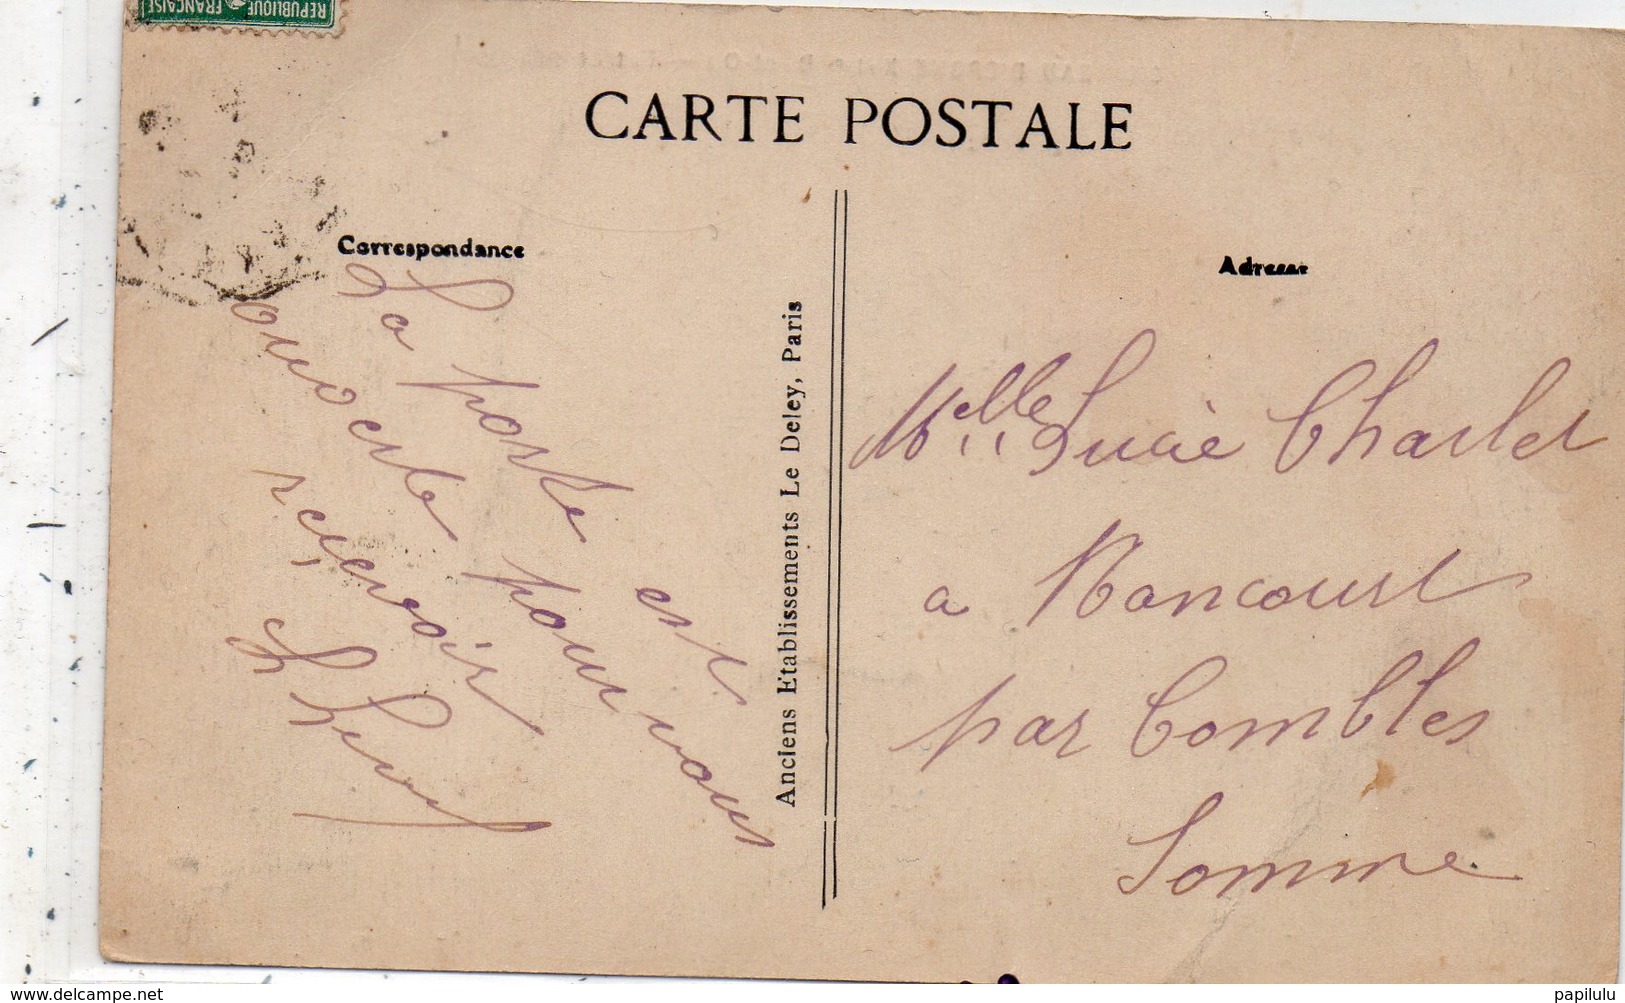 REPUBLIQUE FRANCAISE
CARTE POSTALE
Correspondance
La porte est
ouverte pour vous
recevoir
Adresse
Melle Lucie Charlet
a Rancourt
par Combles
Somme
Anciens Etablissements Le Deley, Paris
www.delcampe.net
papilulu